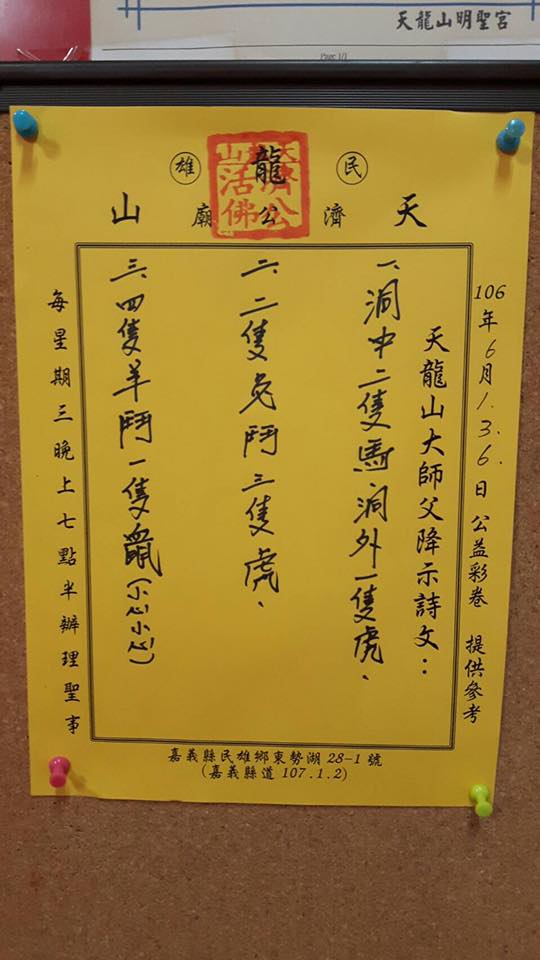 天龍山明聖宮
Page 1/1
民雄
天龍山
濟公廟
天龍山濟公活佛
106年6月1.3.6.日 公益彩卷 提供參考
天龍山大師父降示詩文：
一、洞中二隻馬、洞外一隻虎、
二、二隻兔鬥三隻虎、
三、四隻羊鬥一隻鼠(小心小心)
每星期三晚上七點半辦理聖事
嘉義縣民雄鄉東勢湖28-1號
(嘉義縣道107.1.2)